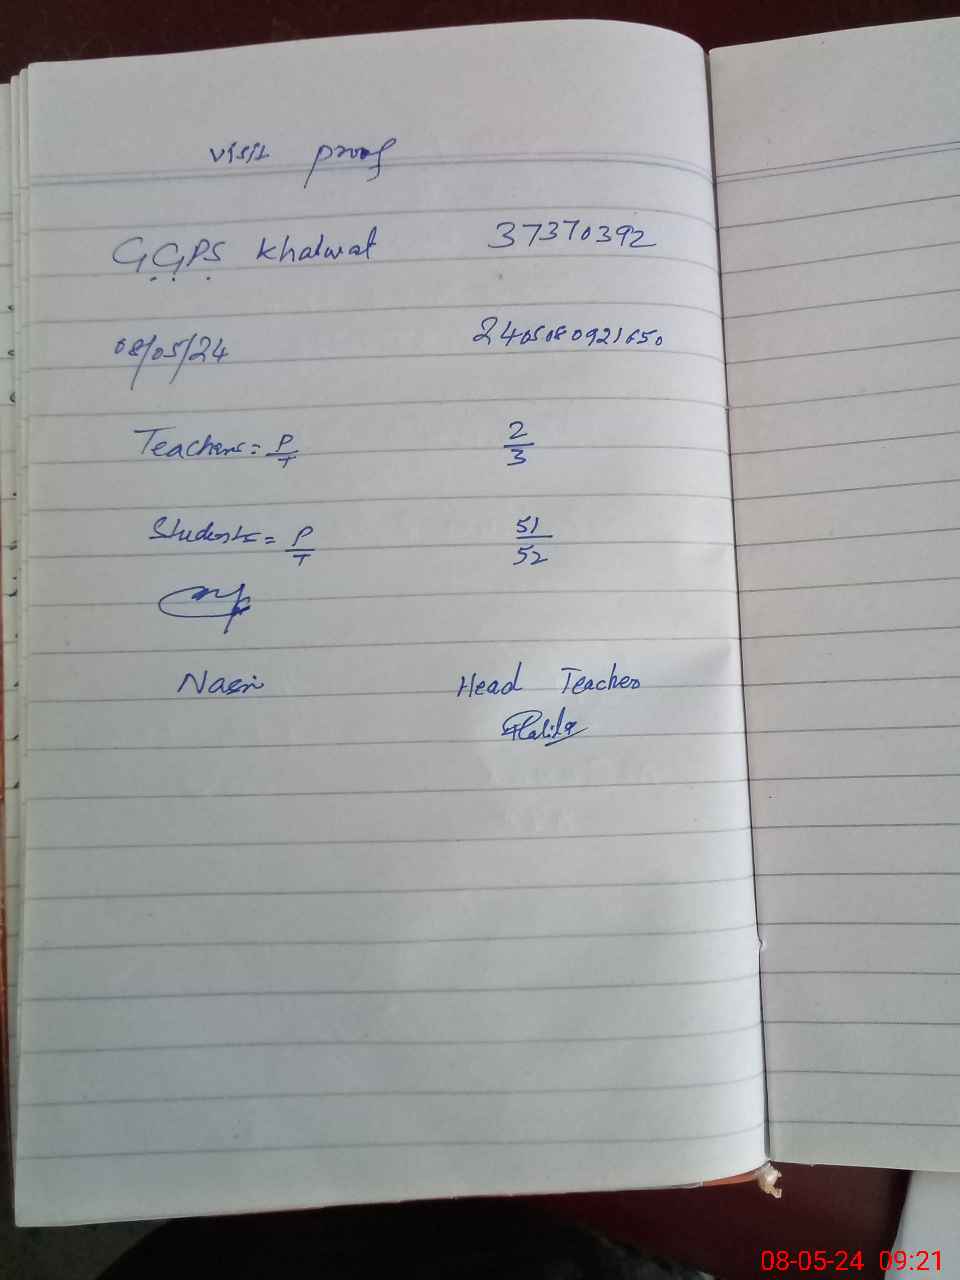 visit proof
G.G.P.S Khalwat 37370392
08/05/24 2405080921650
Teachers = P/T 2/3
Students = P/T 51/52
Nasir Head Teacher
08-05-24 09:21